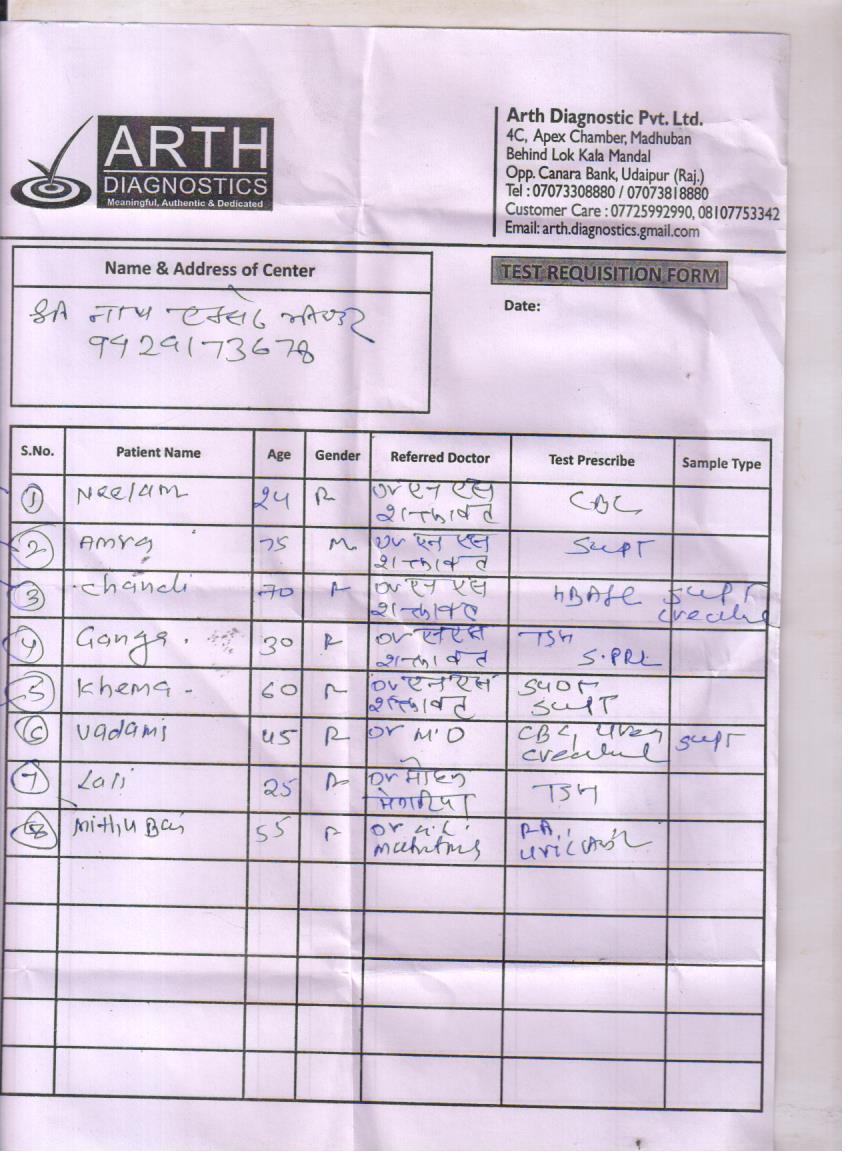 ARTH
DIAGNOSTICS
Meaningful, Authentic & Dedicated
Arth Diagnostic Pvt. Ltd.
4C, Apex Chamber, Madhuban
Behind Lok Kala Mandal
Opp. Canara Bank, Udaipur (Raj.)
Tel : 07073308880 / 07073818880
Customer Care : 07725992990, 08107753342
Email: arth.diagnostics.gmail.com
Name & Address of Center
TEST REQUISITION FORM
Date:
नाथ
9929173678
S.No. Patient Name Age Gender Referred Doctor Test Prescribe Sample Type
1 Neelam 24 F Dr एन एस CBC
शक्तावत
2 Amra 75 M Dr एन एस SGPT
शक्तावत
3 Chandi 70 F Dr एन एस HBA1C SGPT
शक्तावत
4 Ganga. 30 F Dr एन एस TSH
शक्तावत S.PRL
5 Khema. 60 F Dr एन एस SGOT
शक्तावत SGPT
6 Vadami 45 F Dr M.D CBC, SGPT
7 Lali 25 F Dr TSH
8 Mithu Bai 55 F Dr RA,